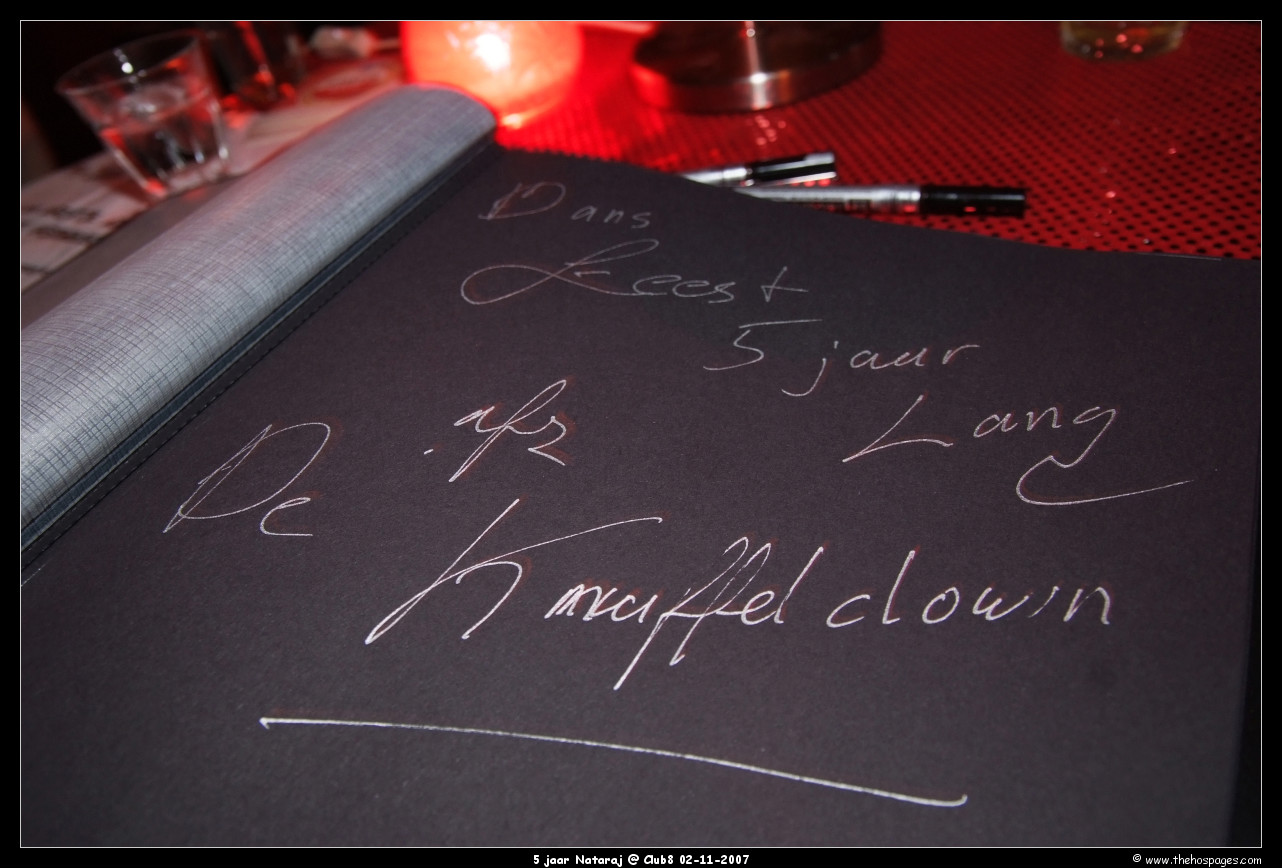 Dans
Feest
5 jaar
Lang
afz
De
Knuffel clown
5 jaar Nataraj @ Club8 02-11-2007
© www.thehospages.com